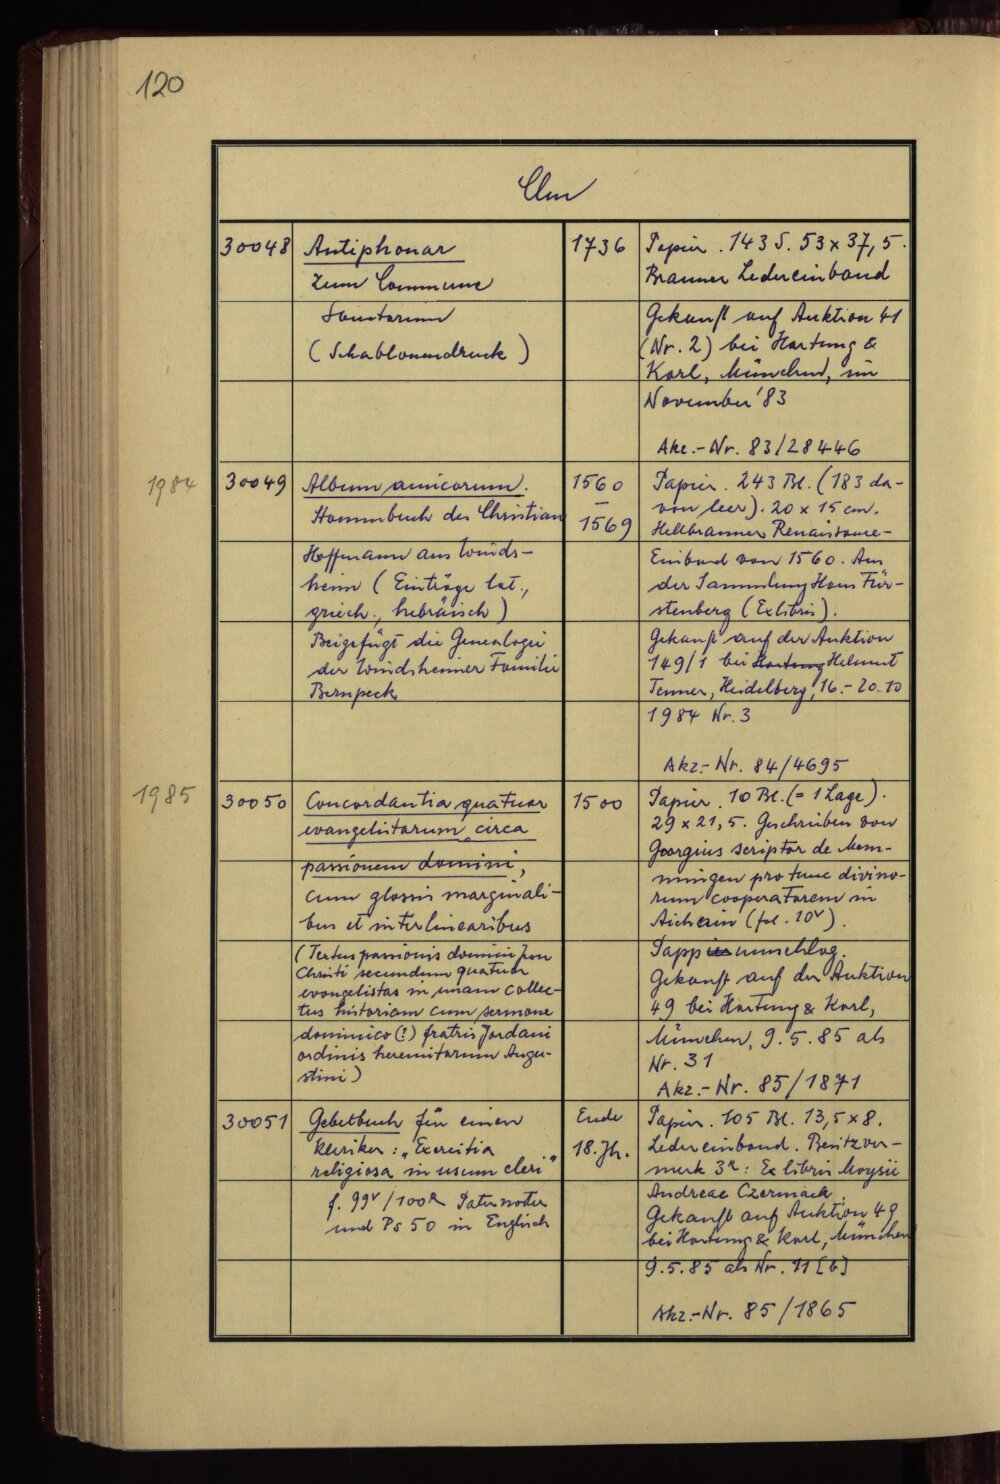 120
Clm
30048
Antiphonar
zum Commune
Sanctorum
(Schablonendruck)
1736
Papier. 143 S. 53 x 37,5.
Brauner Ledereinband
Gekauft auf Auktion 41
(Nr. 2) bei Hartung &
Karl, München, im
November '83
Akz.-Nr. 83/28446
1984
30049
Album amicorum.
Stammbuch des Christian
Hoffmann aus Winds-
heim (Einträge lat.,
griech., hebräisch)
Beigefügt die Genealogie
der Windsheimer Familie
Bernpeck
1560
–
1569
Papier. 243 Bl. (183 da-
von leer). 20 x 15 cm.
Hellbrauner Renaissance-
Einband von 1560. Aus
der Sammlung Hans Für-
stenberg (Exlibris).
Gekauft auf der Auktion
149/1 bei Hartung Helmut
Tenner, Heidelberg, 16.-20.10
1984 Nr. 3
Akz.-Nr. 84/4695
1985
30050
Concordantia quatuor
evangelistarum circa
passionem domini,
cum glossis marginali-
bus et interlinearibus
(Textus passionis domini Jesu
Christi secundum quatuor
evangelistas in unam collec-
tus historiam cum sermone
dominico (!) fratris Jordani
ordinis heremitarum Augu-
stini)
1500
Papier. 10 Bl. (= 1 Lage).
29 x 21,5. Geschrieben von
Georgius scriptor de Mem-
mingen pro tunc divino-
rum cooperatorem in
Aichain (fol. 10v).
Pappumschlag.
Gekauft auf der Auktion
49 bei Hartung & Karl,
München, 9.5.85 als
Nr. 31
Akz.-Nr. 85/1871
30051
Gebetbuch für einen
Kleriker: "Exercitia
religiosa in usum cleri"
f. 99v/100R Paternoster
und Ps 50 in Englisch
Ende
18. Jh.
Papier. 105 Bl. 13,5 x 8.
Ledereinband. Besitzver-
merk 3R: Ex libris Moysii
Andreae Czermack.
Gekauft auf Auktion 49
bei Hartung & Karl, München
9.5.85 als Nr. 11 [b]
Akz.-Nr. 85/1865